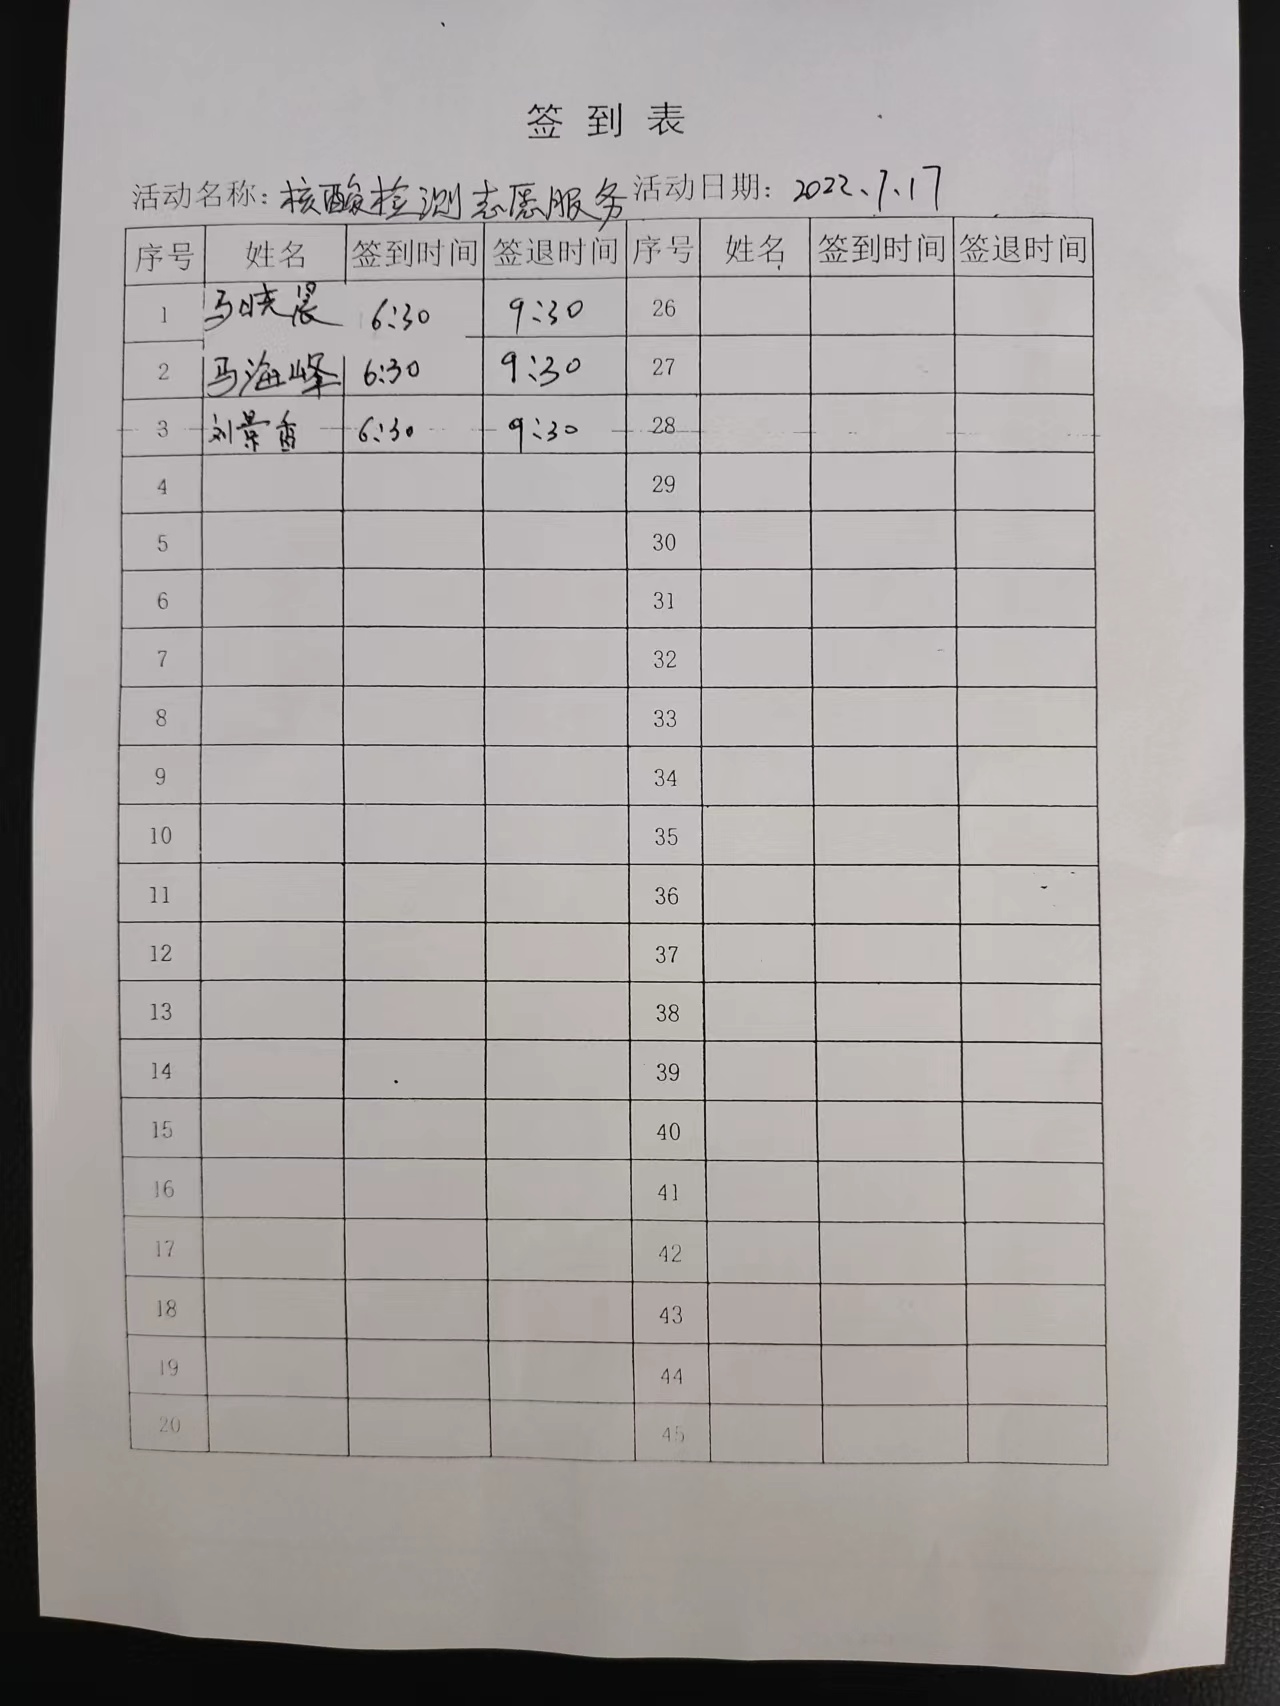 签到表
活动名称：核酸检测志愿服务 活动日期：2022.7.17
序号 姓名 签到时间 签退时间 序号 姓名 签到时间 签退时间
1 马晓晨 6:30 9:30 26
2 马海峰 6:30 9:30 27
3 刘景香 6:30 9:30 28
4 29
5 30
6 31
7 32
8 33
9 34
10 35
11 36
12 37
13 38
14 39
15 40
16 41
17 42
18 43
19 44
20 45